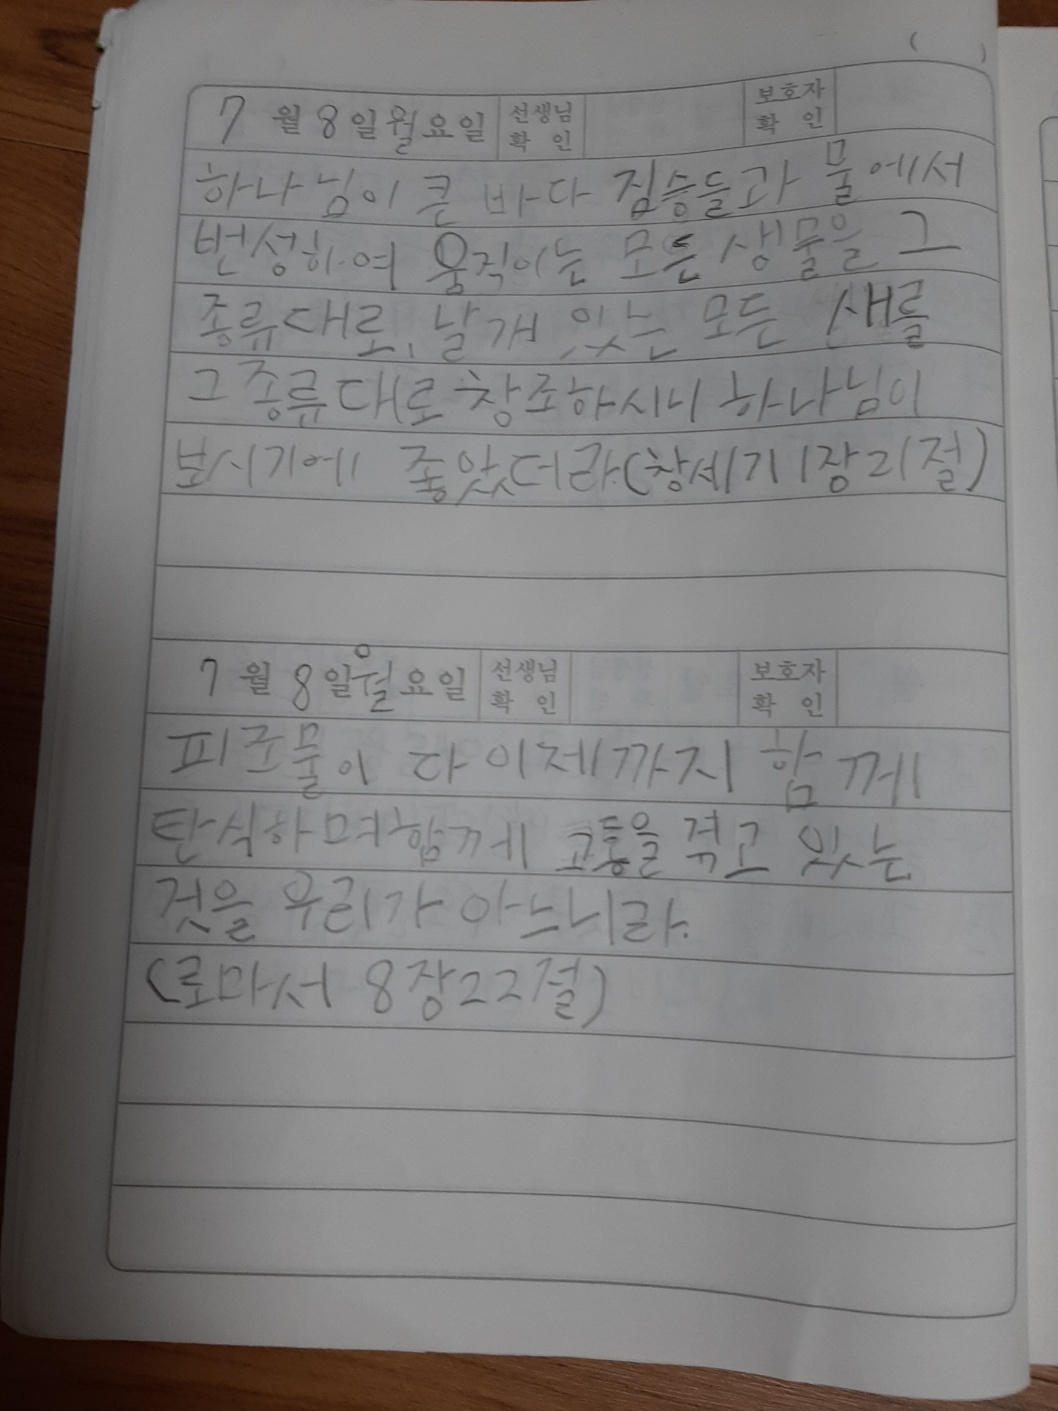 (     )
7 월 8 일 월 요일 선생님 확 인 보호자 확 인
하나님이 큰 바다 짐승들과 물에서
번성하여 움직이는 모든 생물을 그
종류대로, 날개 있는 모든 새를
그 종류대로 창조하시니 하나님이
보시기에 좋았더라.(창세기 1장 21절)
7 월 8 일 월 요일 선생님 확 인 보호자 확 인
피조물이 다 이제까지 함께
탄식하며 함께 고통을 겪고 있는
것을 우리가 아느니라.
(로마서 8장 22절)